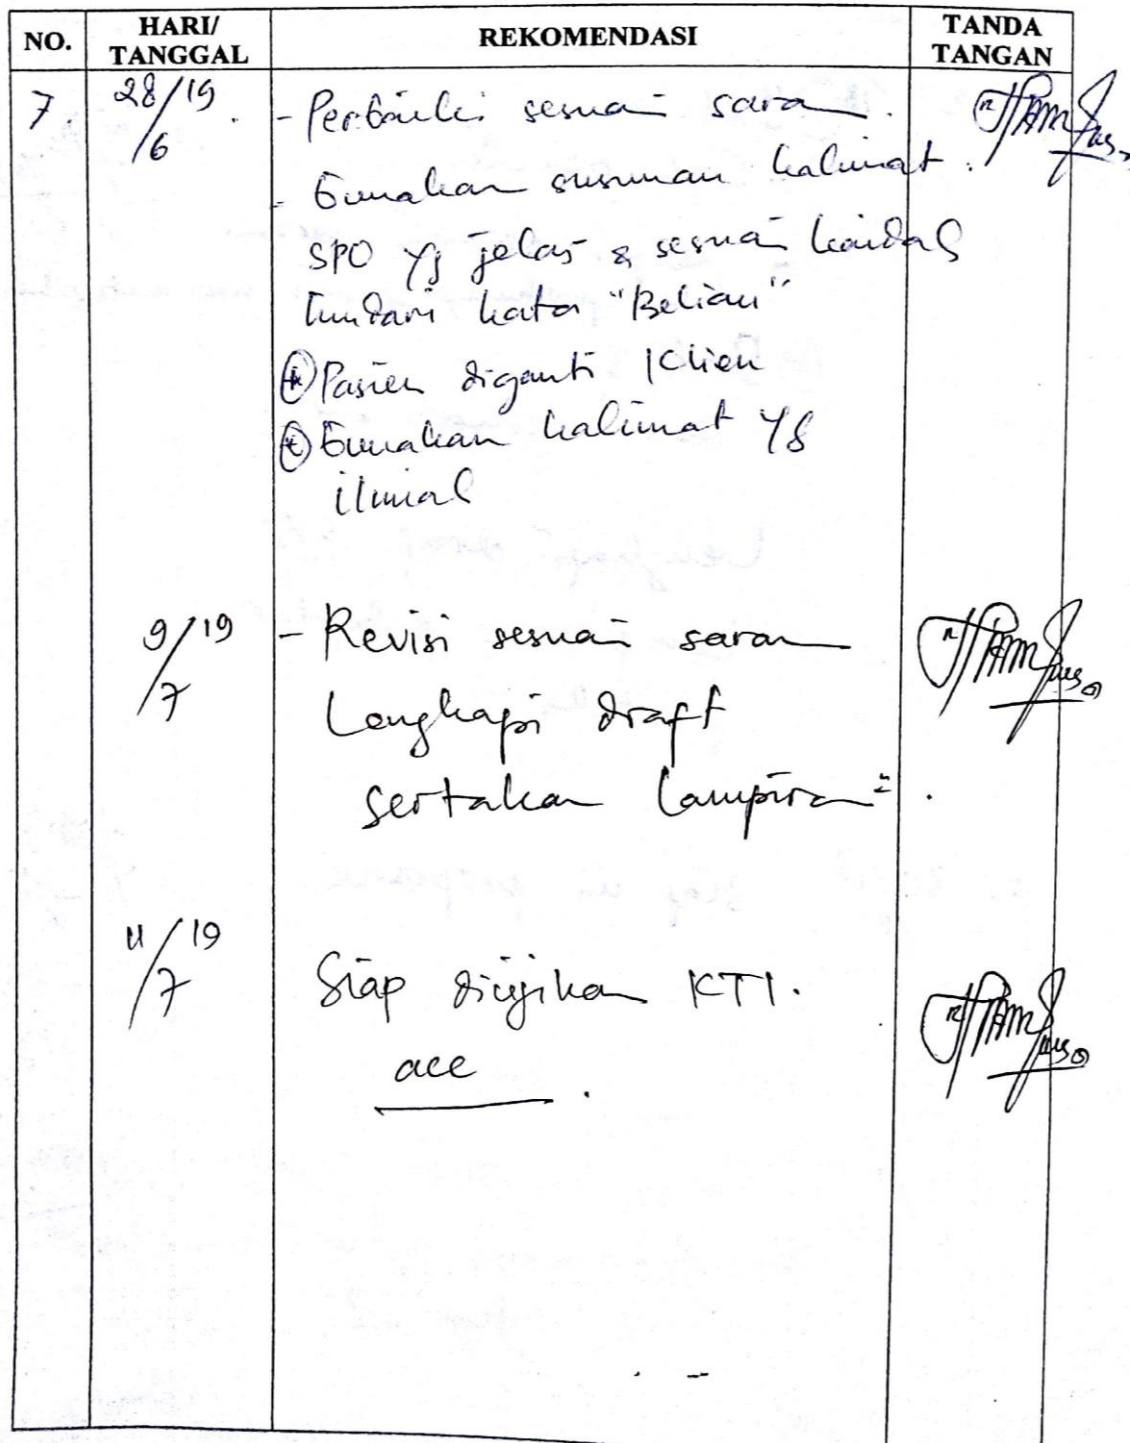 NO. HARI/ TANGGAL REKOMENDASI TANDA TANGAN
7. 28/6 19 - Perbaiki sesuai saran.
- Gunakan susunan kalimat
SPO yg jelas & sesuai kaidah
hindari kata "Beliau"
Pasien diganti Klien
Gunakan kalimat yg
ilmiah
9/7 19 - Revisi sesuai saran
Lengkapi draft
sertakan lampiran² .
11/7 19 Siap diujikan KTI.
acc .